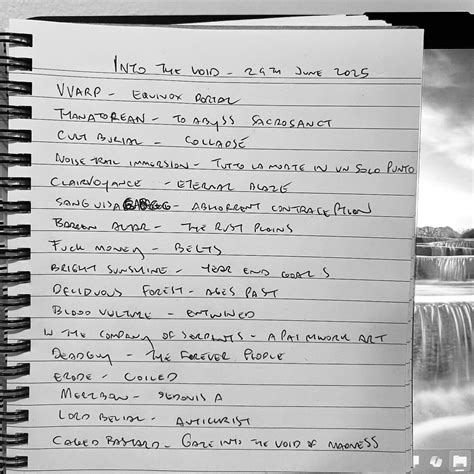 INTO THE VOID - 29TH JUNE 2025
VVARP - EQUINOX PORTAL
THANATOREAN - TO ABYSS SACROSANCT
CULT BURIAL - COLLAPSE
NOISE TRAIL IMMERSION - TUTTO LA MORTE IN UN SOLO PUNTO
CLAIRVOYANCE - ETERNAL BLAZE
SANGUISU - ABHORRENT CONTRACEPTION
BARREN ALTAR - THE RUST PLAINS
FUCK MONEY - BELTS
BRIGHT SUNSHINE - YEAR END GOALS
DECIDUOUS FOREST - AGES PAST
BLOOD VULTURE - ENTWINED
IN THE COMPANY OF SERPENTS - A PATCHWORK ART
DEADGUY - THE FOREVER PEOPLE
ERODE - COILED
MERZBOW - SEDONIS A
LORD BELIAL - ANTICHRIST
CAGED BASTARD - GAZE INTO THE VOID OF MADNESS